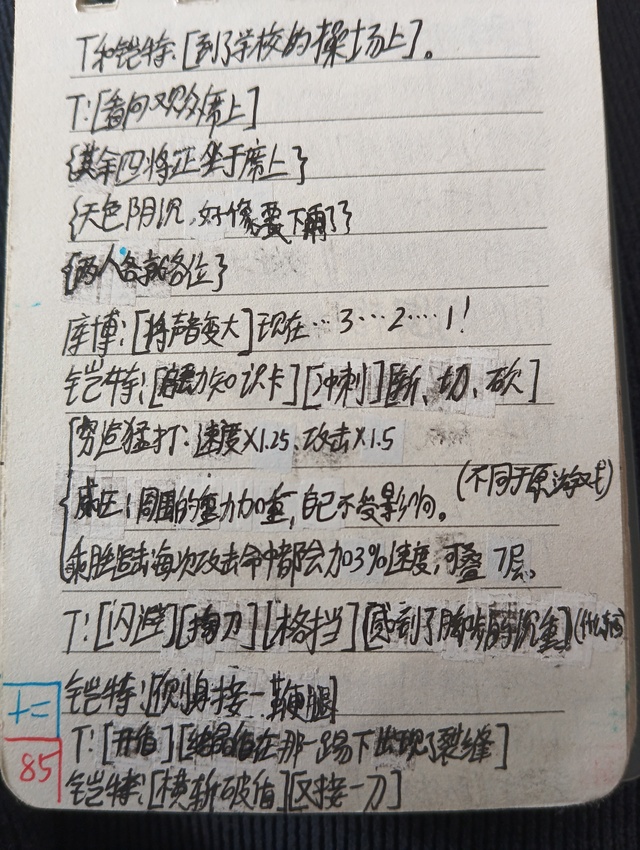 T和铠特:[到了学校的操场上]。
T:[看向观众席上]
{其余四将正坐于席上}
{天色阴沉,好像要下雨了}
{两人各就各位}
库博:[将声音变大]现在…3…2…1!
铠特:[启动知识卡][冲刺][斩、切、砍]
穷追猛打:速度×1.25、攻击×1.5
威压:周围的重力加重,自己不受影响。(不同于原游戏)
乘胜追击每次攻击命中都会加3%速度,可叠7层。
T:[闪避][掏刀][格挡][感到了脚步的沉重]
铠特:[侧身接一鞭腿]
十二
T:[开盾][结晶盾在那一踢下出现了裂缝]
85
铠特:[横斩破盾][又接一刀]